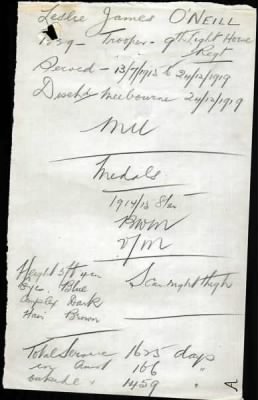 Leslie James O'NEILL
1039 - Trooper - 9th Light Horse
Regt
Served - 13/7/1915 to 24/12/1919
Disch'd Melbourne 24/12/1919
MU
Medals
1914/15 Star
BWM
V/M
Height 5ft 4in
Eyes Blue
Complex Dark
Hair Brown
Scar right thigh
Total Service 1625 days
in Aust 166 "
outside " 1459 "
A